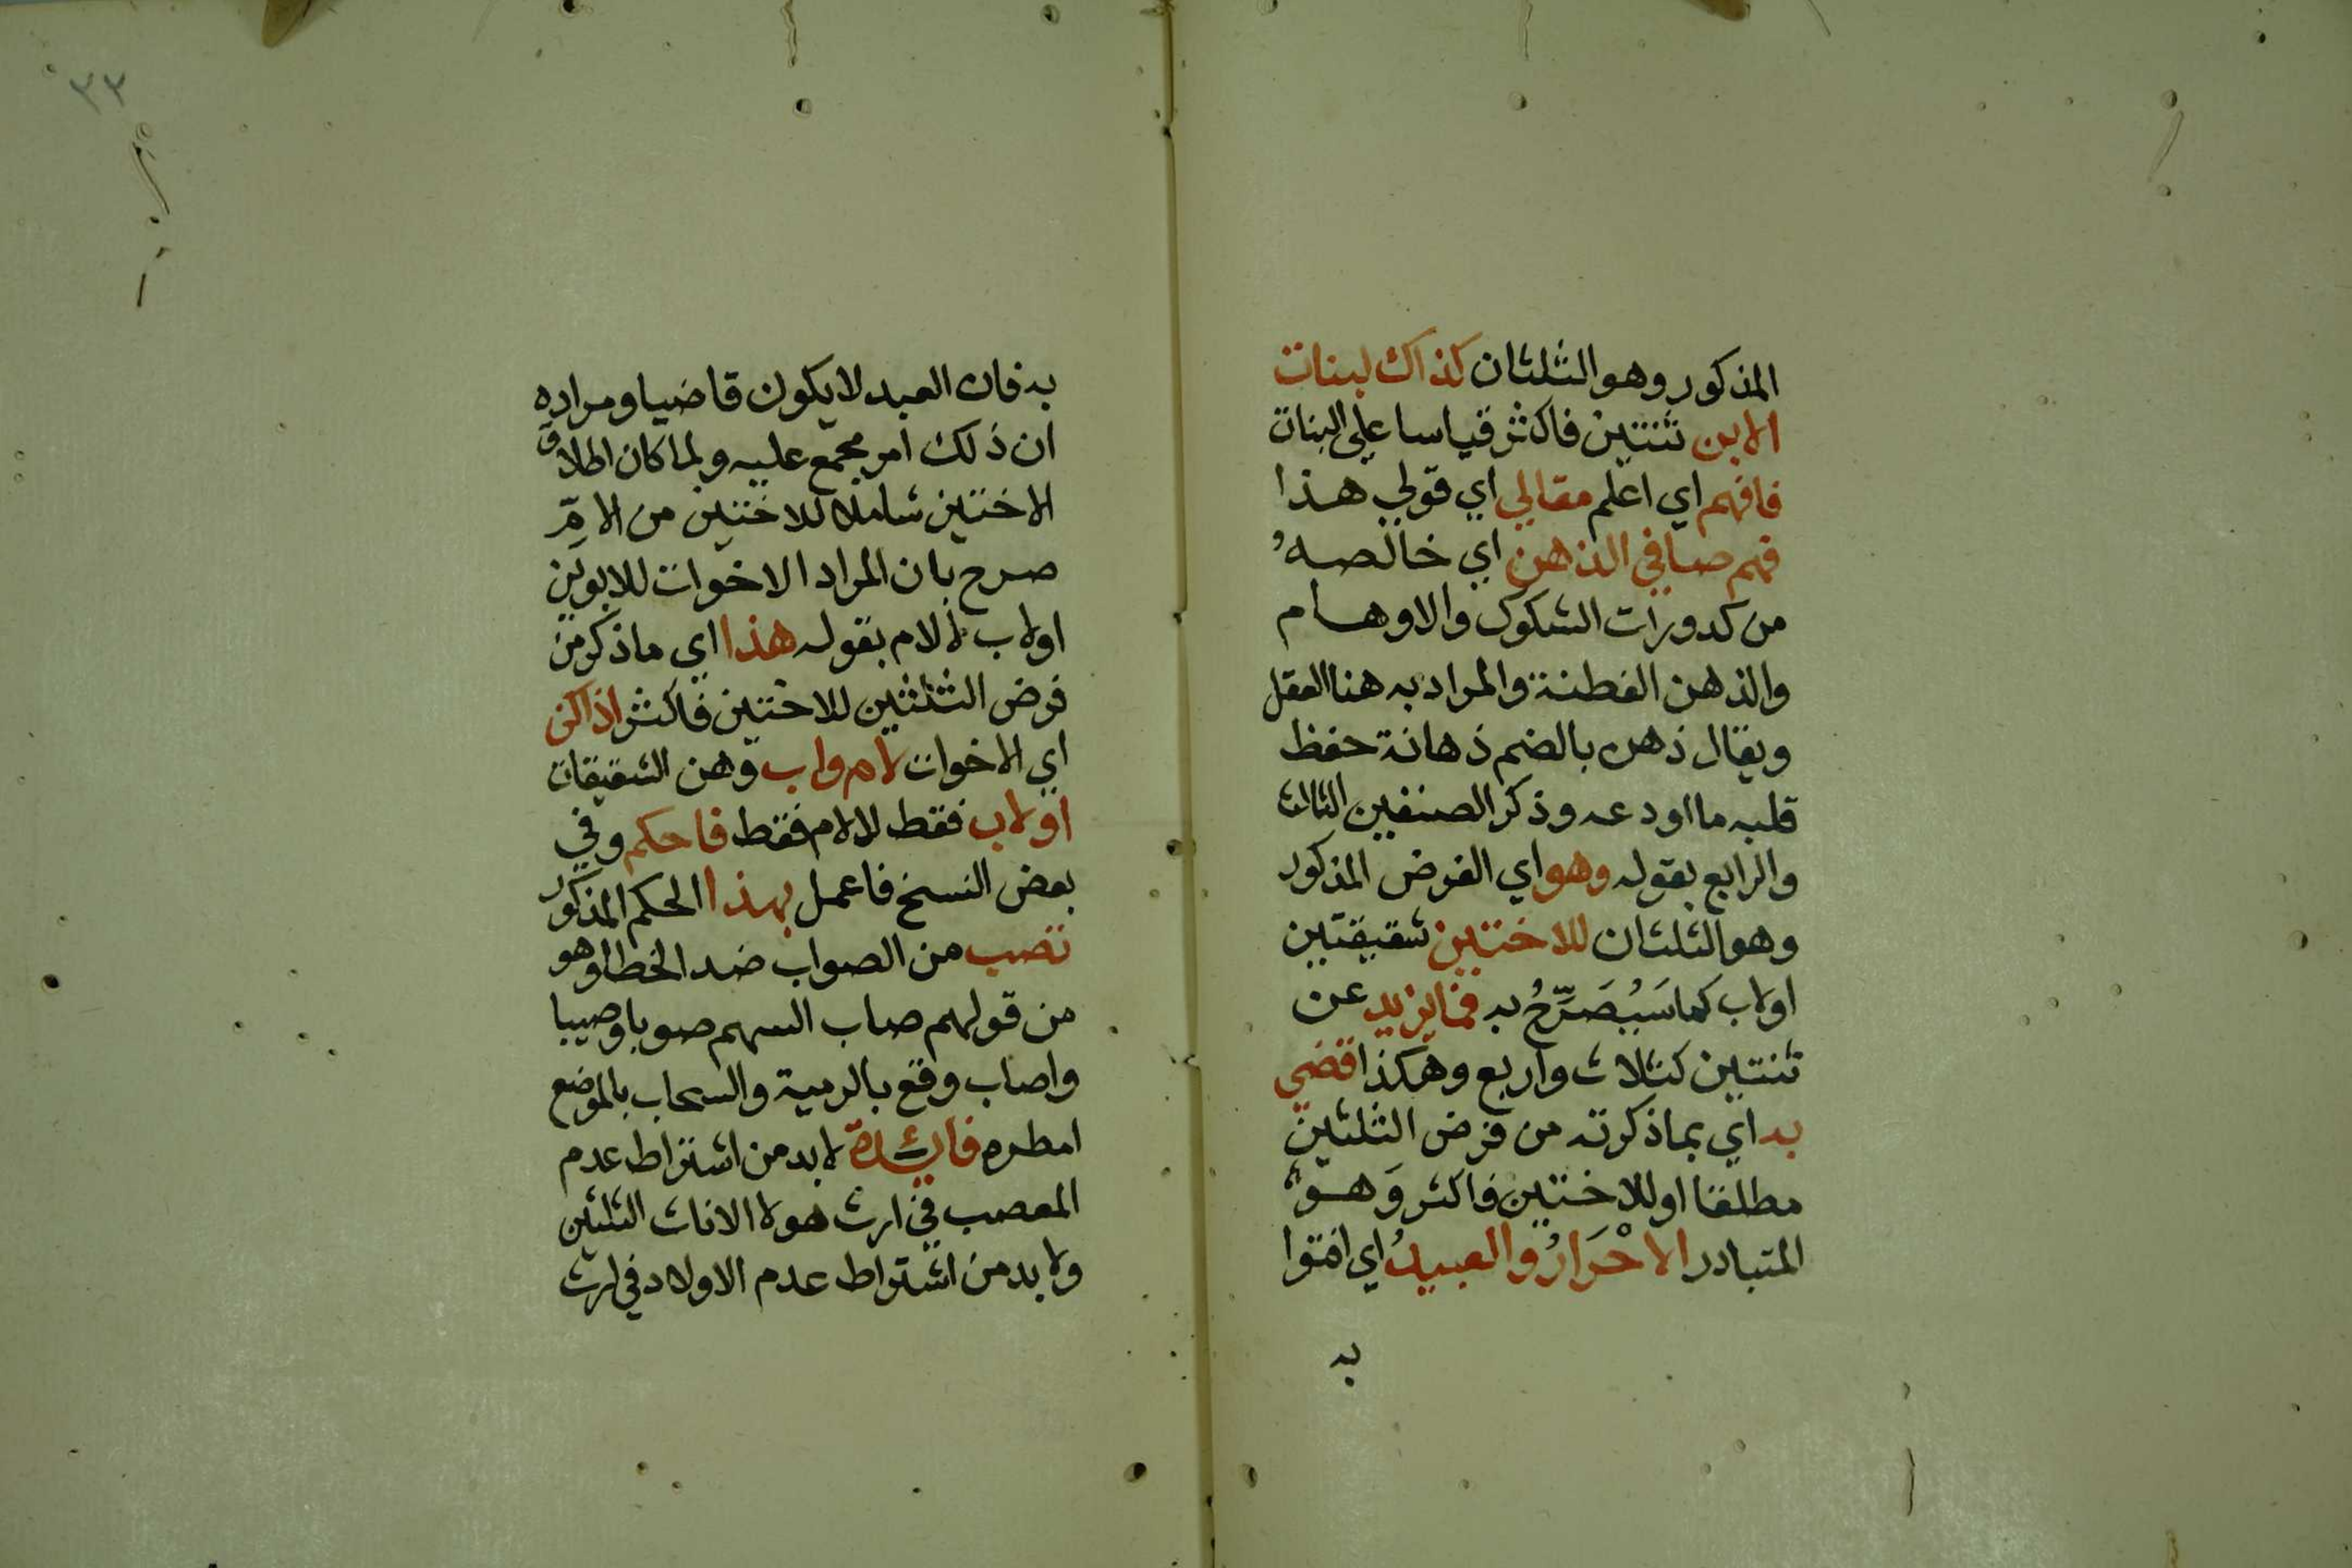 المذكور وهو الثلثان كذاك لبنات
الابن ثنتين فاكثر قياسا على البنات
فافهم اي اعلم مقالي اي قولي هذا
فهم صافي الذهن اي خالصه
من كدورات الشكوك والاوهام
والذهن الفطنة والمراد به هنا العقل
ويقال ذهن بالضم ذهانة حفظ
قلبه ما اودعه وذكر الصنفين الثالث
والرابع بقوله وهو اي الفرض المذكور
وهو الثلثان للاختين شقيقتين
اولاب كما سَيُصَرِّحُ به فما يزيد عن
ثنتين كثلاث واربع وهكذا قضي
به اي بما ذكرته من فرض الثلثين
مطلقا او للاختين فاكثر وَهو
المتبادر الاحْرَارُ والعبيدُ اي افتوا
به
٣٣
به فان العبد لا يكون قاضيا ومراده
ان ذلك امر مجمع عليه ولما كان اطلاق
الاختين شاملا للاختين من الامّ
صرح بان المراد الاخوات للابوين
اولاب لا لام بقوله هذا اي ما ذكر من
فرض الثلثين للاختين فاكثر اذا كن
اي الاخوات لام واب وهن الشقيقات
اولاب فقط لا لام فقط فاحكم وفي
بعض النسخ فاعمل بهذا الحكم المذكور
تصب من الصواب ضد الخطا وهو
من قولهم صاب السهم صوبا وصيبا
واصاب وقع بالرمية والسحاب بالموضع
امطره فائدة لا بد من اشتراط عدم
المعصب في ارث هولا الاناث الثلثين
ولا بد من اشتراط عدم الاولاد في ارث